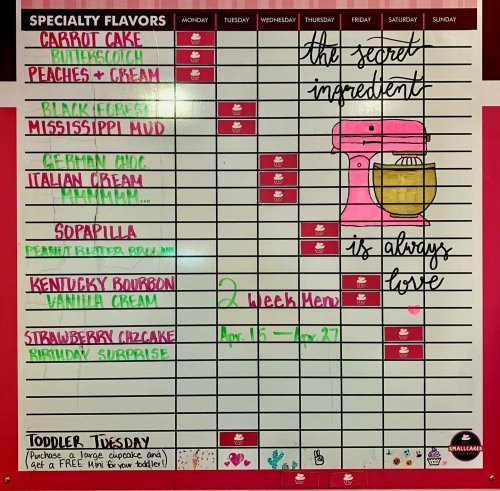 SPECIALTY FLAVORS MONDAY TUESDAY WEDNESDAY THURSDAY FRIDAY SATURDAY SUNDAY
CARROT CAKE
BUTTERSCOTCH
PEACHES + CREAM
the secret
ingredient
BLACK FOREST
MISSISSIPPI MUD
GERMAN CHOC
ITALIAN CREAM
MMMMMM...
SOPAPILLA
PEANUT BUTTER BROWNIE
is always
love
KENTUCKY BOURBON
VANILLA CREAM
2 Week Menu
STRAWBERRY CAZCAKE
Apr. 15 — Apr. 27
BIRTHDAY SURPRISE
TODDLER TUESDAY
(Purchase a large cupcake and
get a FREE Mini for your toddler!)
SMALLCAKES